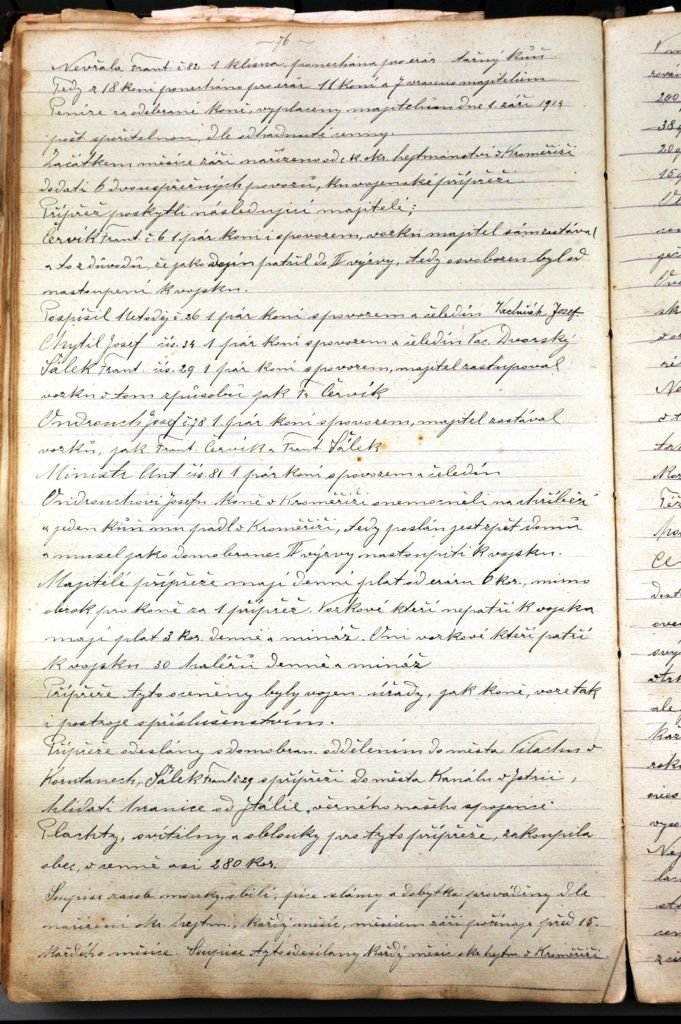 — 76 —
Nevřala Frant. č. 82 1 klisna, ponechána pro erár tažný kůň
Tedy z 18 koní ponecháno pro erár 11 koní a 7 vráceno majitelům
Peníze za odebrané koně, vyplaceny majitelům dne 1. září 1914
pošt. spořitelnou, dle odhadnuté cenny.
Začátkem měsíce září nařízeno od c. k. okr. hejtmanství v Kroměříži
dodati 6 dvouspřežných povozů, ku vojenské přípřeži.
Přípřež poskytli následující majitelé;
Červík Frant. č. 6 1 pár koní s povozem, vozku majitel sám zastával
a to z důvodů, že jako vojín patřil do II výzvy, tedy osvobozen byl od
nastoupení k vojsku.
Pospíšil Metoděj č. 26 1 pár koní s povozem a čeledín Josef
Chytil Josef čís. 34 1 pár koní s povozem a čeledín Vac. Dvorský
Sálek Frant. čís. 29 1 pár koní s povozem, majitel zastupoval
vozku v tom způsobu jak Fr. Červík
Ondrouch Josef č. 78 1 pár koní s povozem, majitel zastával
vozku, jak Frant. Červík a Frant. Sálek
Ministr Ant. čís. 81 1 pár koní s povozem a čeledín
Ondrouchovi Josefu koně v Kroměříži onemocněli na chřiběcí
a jeden kůň mu padl v Kroměříži, tedy poslán jest zpět domů
a musel jako domobranec II výzvy nastoupiti k vojsku.
Majitélé přípřeže mají denní plat od eráru 6 kor., mimo
obrok pro koně za 1 přípřež. Vozkové kteří nepatří k vojsku
mají plat 3 kor. denně a mináž. Oni vozkové kteří patří
k vojsku 30 haléřů denně a mináž
Přípřeže tyto sceněny byly vojen. úřady, jak koně, voze tak
i postroje s příslušenstvím.
Přípřeže odeslány s domobran. oddělením do města Vilachu v
Korutanech, Sálek Frant. č. 29 s přípřeží do města Kanálu v Istrii,
hlídati hranice od Itálie, věrného našeho spojence.
Plachty, svítilny a oblouky pro tyto přípřeže, zakoupila
obec, v cenně asi 280 kor.
Soupise zásob mouky, obilí, píce slámy a dobytka, prováděny dle
nařízení okr. hejtm., každý měsíc, měsícem září počínaje před 15.
každého měsíce. Soupise tyto odesílány každý měsíc okr. hejtm. v Kroměříži.